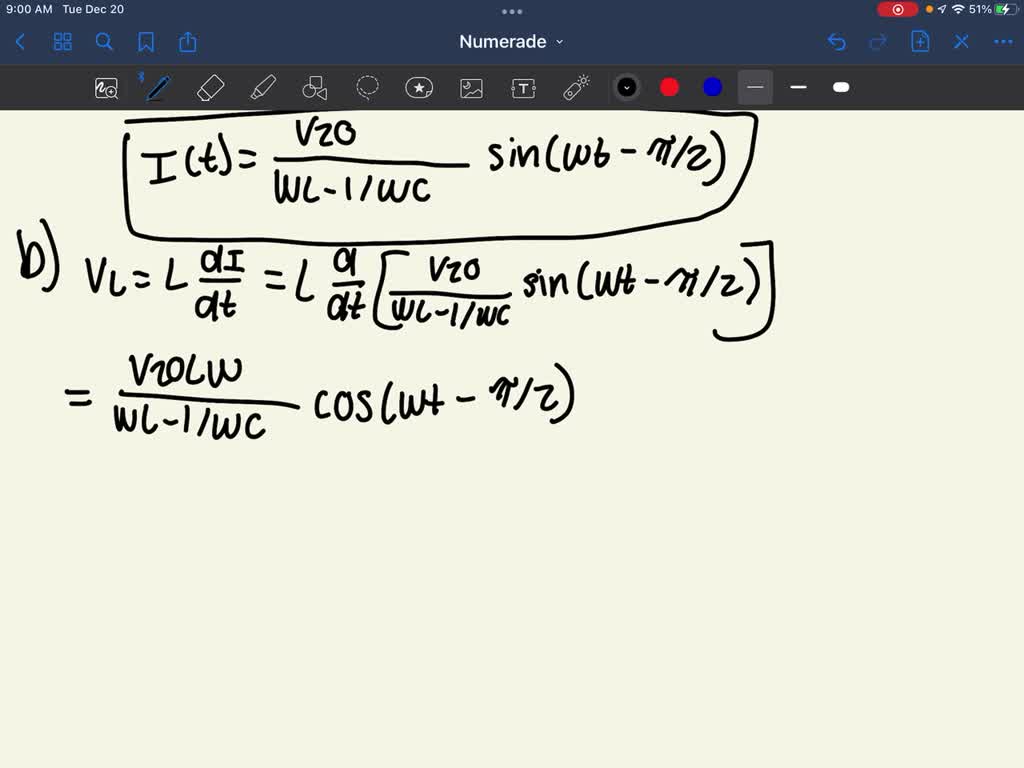 9:00 AM Tue Dec 20
51%
Numerade
I(t) = V20 / (WL - 1/WC) sin(wt - π/2)
b) VL = L dI/dt = L d/dt [V20 / (WL - 1/WC) sin(wt - π/2)]
= V20LW / (WL - 1/WC) cos(wt - π/2)